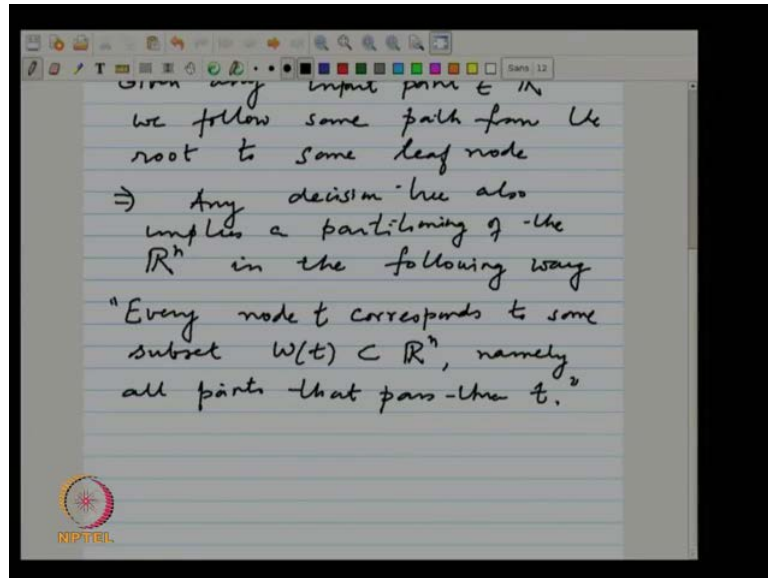 Sans 12
Given any input point ∈ ℝ
we follow some path from the
root to some leaf node
⇒ Any decision tree also
implies a partitioning of the
ℝⁿ in the following way
"Every node t corresponds to some
subset W(t) ⊂ ℝⁿ, namely
all points that pass thru t."
NPTEL